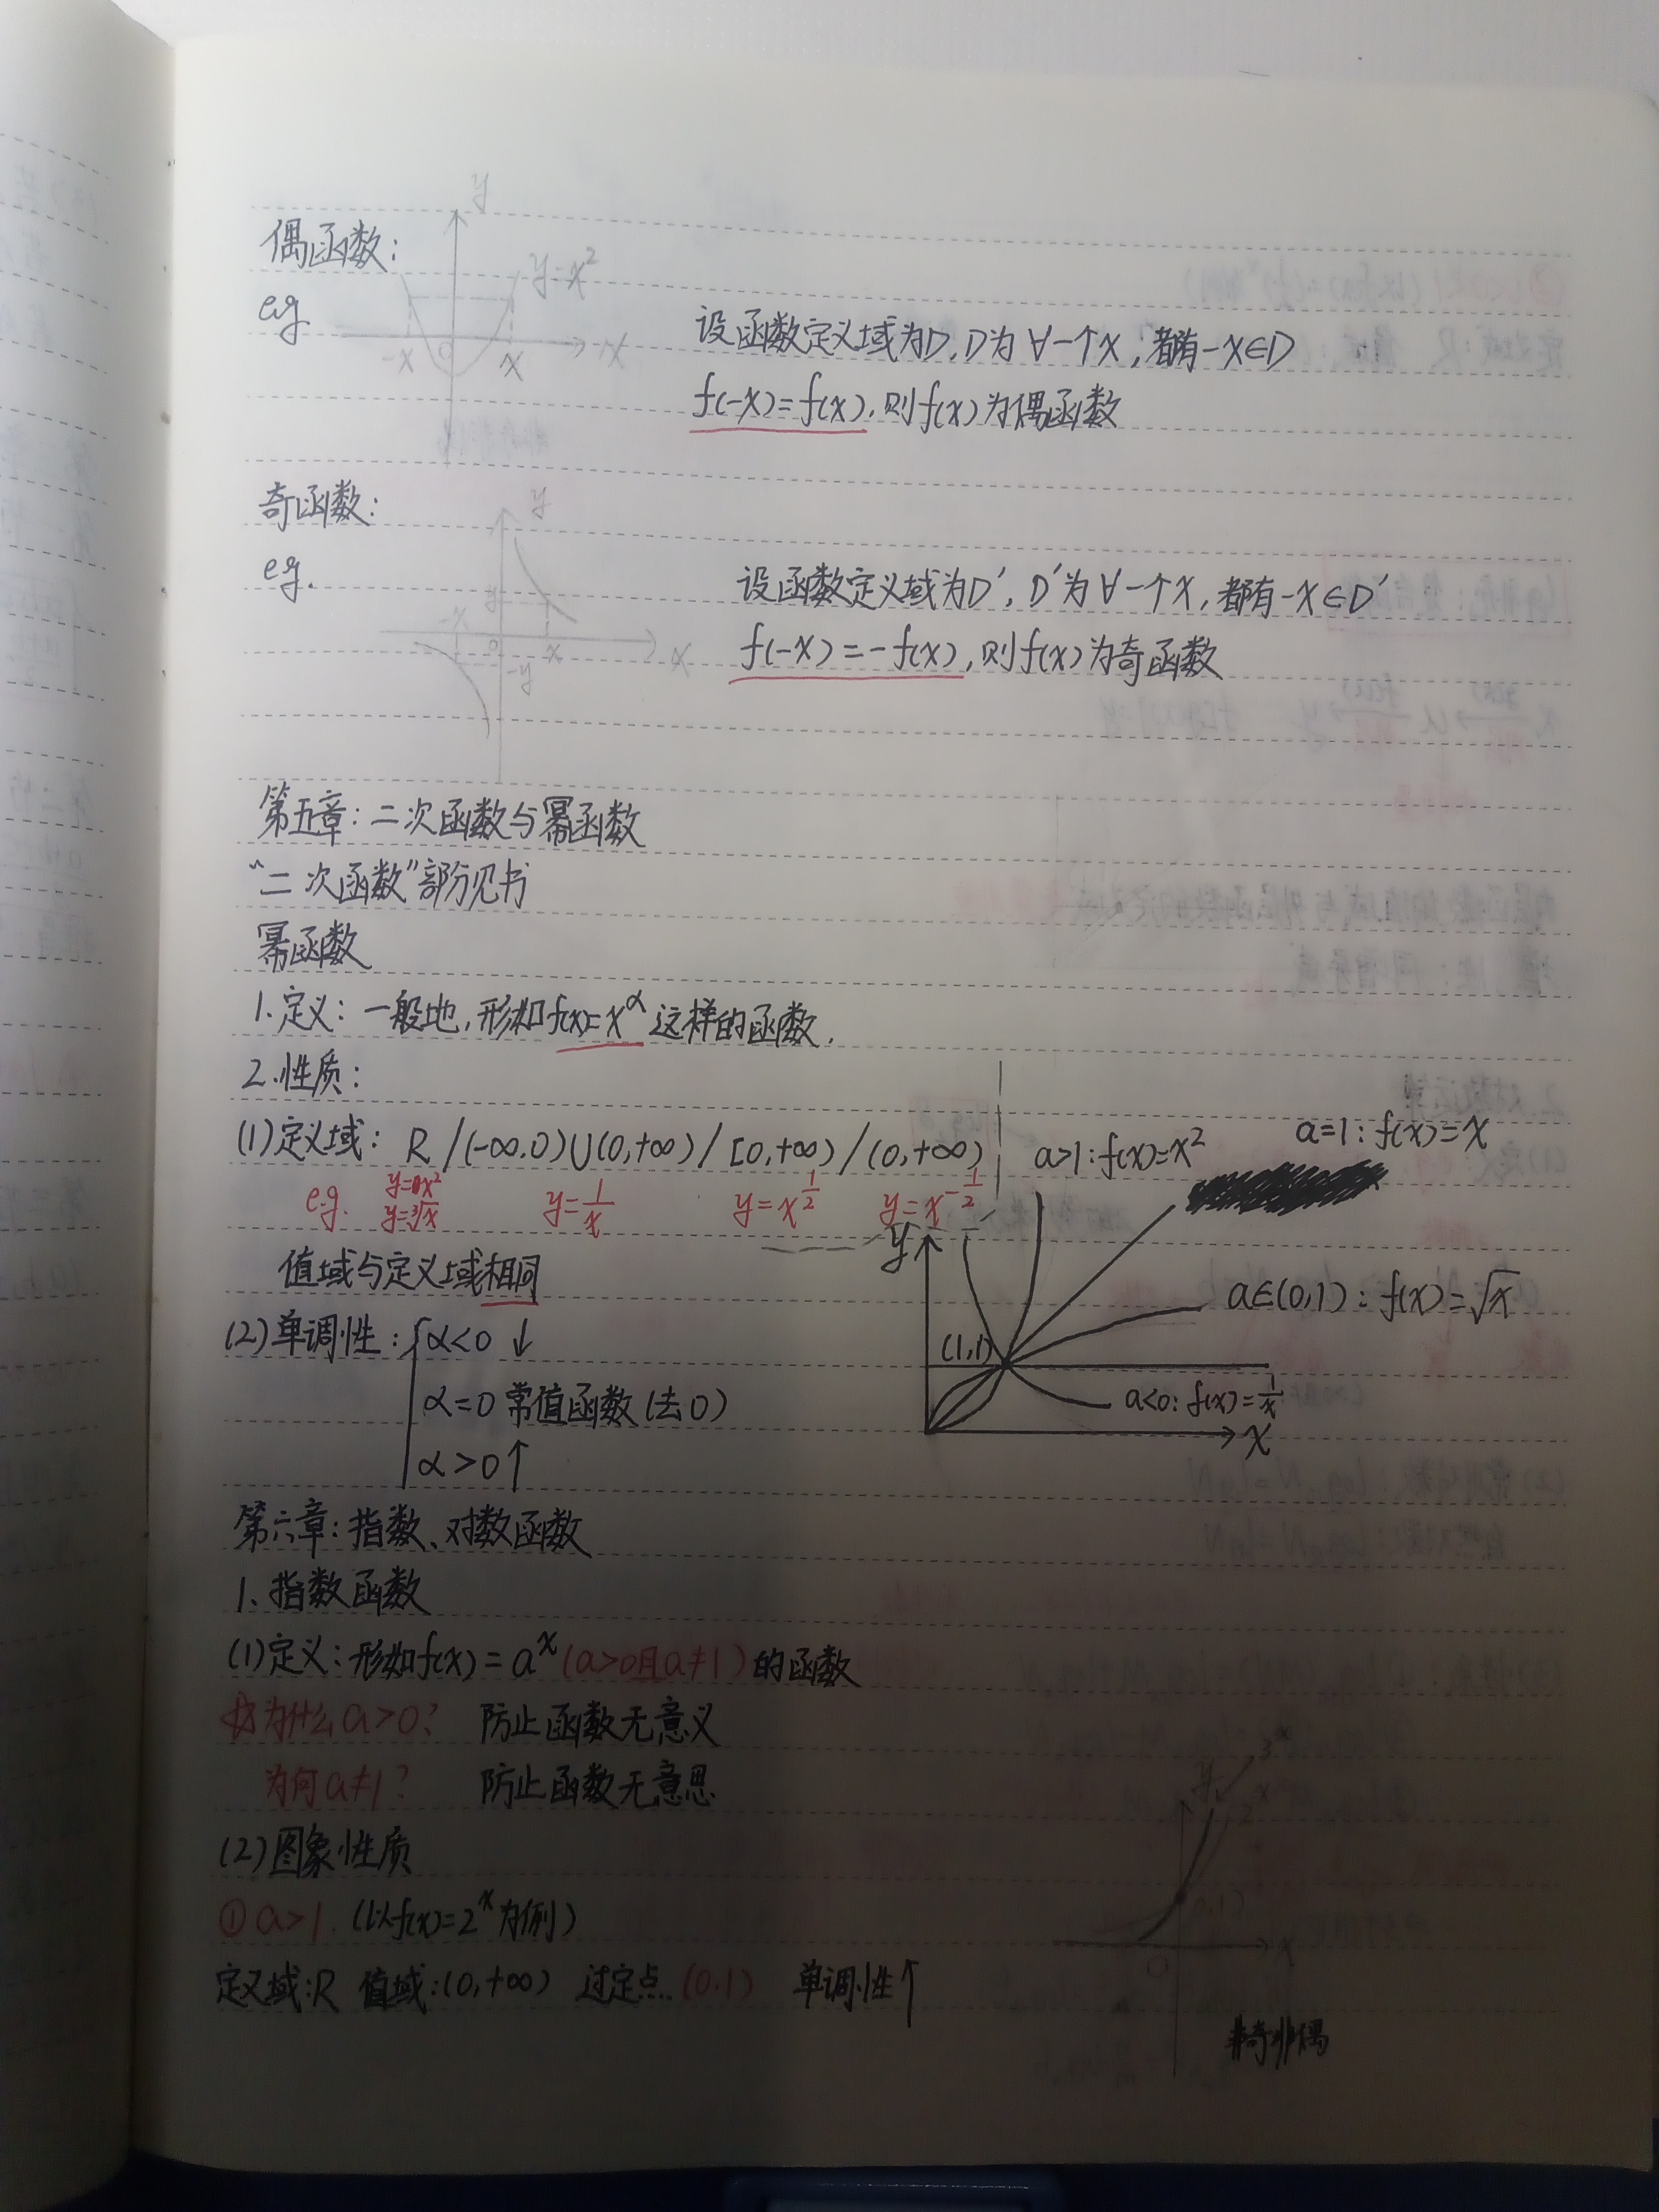 偶函数:
y
y=x²
eg
-x 0 x x
设函数定义域为D, D为∀一个x, 都有-x∈D
f(-x)=f(x), 则f(x)为偶函数
奇函数:
y
eg.
y
-x 0 x x
-y
设函数定义域为D′, D′为∀一个x, 都有-x∈D′
f(-x)=-f(x), 则f(x)为奇函数
第五章: 二次函数与幂函数
"二次函数"部分见书
幂函数
1.定义: 一般地, 形如f(x)=x^α这样的函数.
2.性质:
(1)定义域: R /(-∞,0)∪(0,+∞)/[0,+∞)/(0,+∞)
e.g. y=x² y=1/x y=x^(1/2) y=x^(-1/2)
y=³√x
值域与定义域相同
(2)单调性: { α<0 ↓
α=0 常值函数(去0)
α>0 ↑
a>1: f(x)=x²
a=1: f(x)=x
y
a∈(0,1): f(x)=√x
(1,1)
a<0: f(x)=1/x
x
第六章: 指数、对数函数
1、指数函数
(1)定义: 形如f(x)=a^x(a>0且a≠1)的函数
为什么a>0? 防止函数无意义
为何a≠1? 防止函数无意思
(2)图象性质
①a>1. (以f(x)=2^x为例)
定义域:R 值域:(0,+∞) 过定点(0.1) 单调性↑
y 3^x
2^x
(0,1)
0 x
非奇非偶